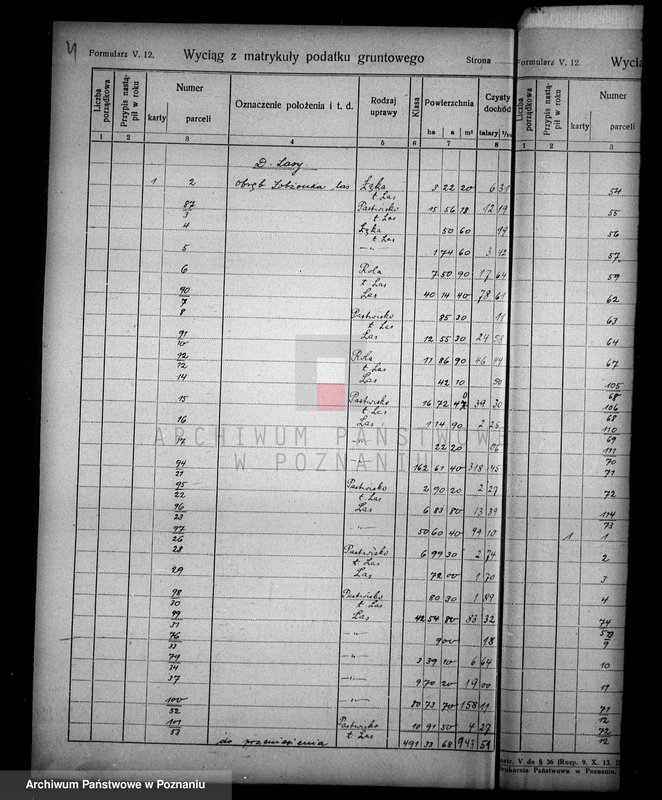 4
Formularz V. 12.
Wyciąg z matrykuły podatku gruntowego
Strona
Liczba porządkowa
Przypis nastąpił w roku
Numer
karty
parceli
Oznaczenie położenia i t. d.
Rodzaj uprawy
Klasa
Powierzchnia
ha a m²
Czysty dochód
talary
1 2 3 4 5 6 7 8
D. Lasy.
1 2 Łąka 3 22 20 6 31
ŧ Las
87/3 Pastwisko 15 56 18 12 19
ŧ Las
4 Łąka 50 60 99
ŧ Las
5 —„— 1 74 60 3 42
6 Rola 7 50 90 17 64
ŧ Las
90/7 Las 40 14 40 78 61
8 Pastwisko 85 30 11
ŧ Las
91/10 Las 12 55 30 24 58
12/12 Rola 11 86 90 46 49
ŧ Las
14 Las 42 10 50
15 Pastwisko 16 72 39 30
ŧ Las
16 Las 1 14 90 2 25
17 —„— 22 20 06
94/21 —„— 162 61 40 318 45
95/22 Pastwisko 2 90 20 2 27
ŧ Las
96/23 Las 6 83 80 13 39
97/26 —„— 50 60 40 99 10
28 Pastwisko 6 99 30 2 74
ŧ Las
29 Las 72 00 1 70
98/30 Pastwisko 80 30 1 89
ŧ Las
99/31 Las 42 54 80 83 32
76/33 —„— 9 00 18
79/34 —„— 3 39 10 6 64
37 9 70 20 19 00
100/52 —„— 80 73 70 158 11
101/53 Pastwisko 10 91 50 4 27
ŧ Las
do przeniesienia 491 33 68 943 51
ARCHIWUM PAŃSTWOWE
W POZNANIU
Formularz V. 12.
Wycią
Liczba porządkowa
Przypis nastąpił w roku
Numer
karty
parceli
1 2 3
54
55
56
57
59
62
63
64
67
105/68
106/68
110/69
111/70
71
72
114/73
1 1
2
3
4
74/9
10
11
71/12
72/12
nstr. V do § 36 (Rozp. 9. X. 13.
Drukarnia Państwowa w Poznaniu.
Archiwum Państwowe w Poznaniu